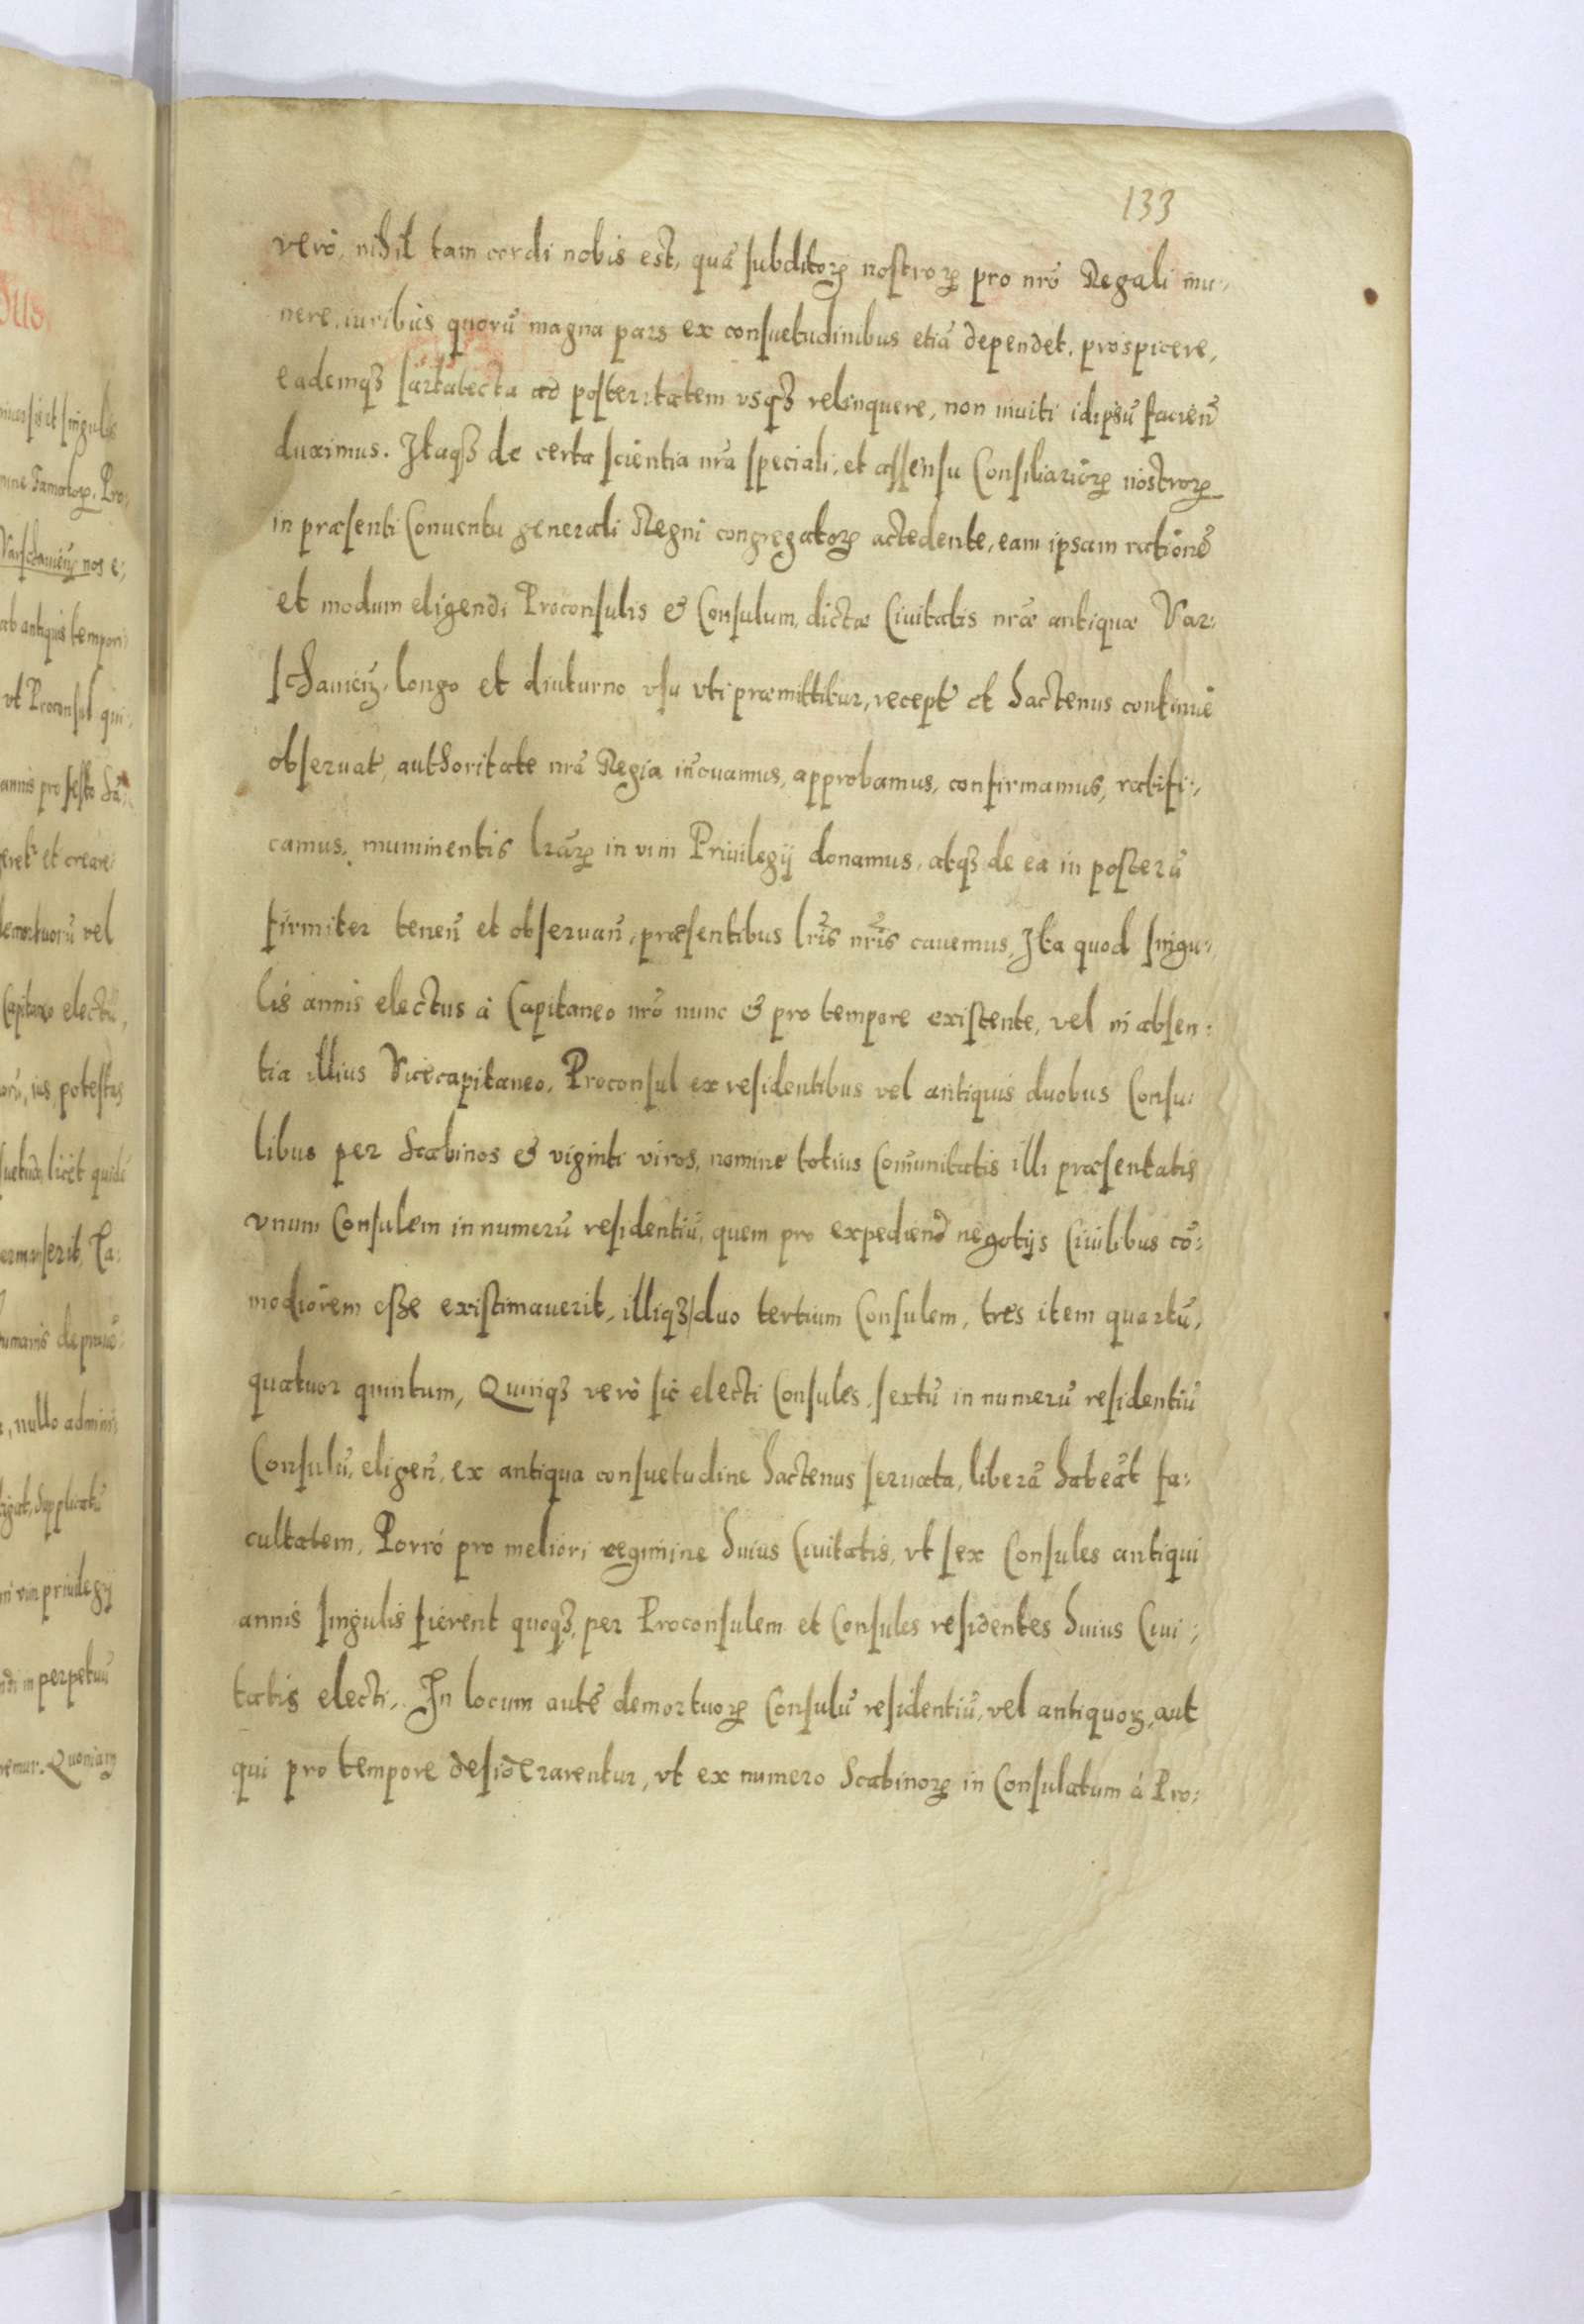 133
verò, nihil tam cordi nobis est, quã subditoꝝ nostroꝝ pro nrõ Regali mu-
nere, iuribus quorũ magna pars ex consuetudinibus etiã dependet, prospicere,
eademqꝫ sartatecta ad posteritatem vsqꝫ relinquere, non inuiti idipsũ facieñ
duximus. Itaqꝫ de certa scientia nrã speciali, et assensu Consiliarioꝝ nostroꝝ
in præsenti Conuentu generali Regni congregatoꝝ accedente, eam ipsam rationẽ
et modum eligendi Proconsulis & Consulum, dictæ Ciuitatis nrãe antiquæ Var-
schauieñ, longo et diuturno vsu vti præmittitur, recept̃ et hactenus continuè
obseruat̃, authoritate nrã Regia iñouamus, approbamus, confirmamus, ratifi-
camus, munimentis lrãꝝ in vim Priuilegij donamus, atqꝫ de ea in posterũ
firmiter teneñ et obseruañ, præsentibus lrĩs nrĩs cauemus, Ita quod singu-
lis annis electus à Capitaneo nrõ nunc & pro tempore existente, vel in absen-
tia illius Vicecapitaneo, Proconsul ex residentibus vel antiquis duobus Consu-
libus per Scabinos & viginti viros, nomine totius Com̃unitatis illi præsentatis
vnum Consulem in numerũ residentiũ, quem pro expediend̃ negotijs Ciuilibus cõ-
modiorem esse existimauerit, illiqꝫ duo tertium Consulem, tres item quartũ,
quatuor quintum, Quinqꝫ verò sic electi Consules, sextũ in numerũ residentiũ
Consulũ, eligeñ, ex antiqua consuetudine hactenus seruata, liberã habeãt fa-
cultatem, Porrò pro meliori regimine huius Ciuitatis, vt sex Consules antiqui
annis singulis fierent quoqꝫ, per Proconsulem et Consules residentes huius Ciui-
tatis electi, In locum autẽ demortuoꝝ Consulũ residentiũ, vel antiquoꝝ, aut
qui pro tempore desiderarentur, vt ex numero Scabinoꝝ in Consulatum à Pro-